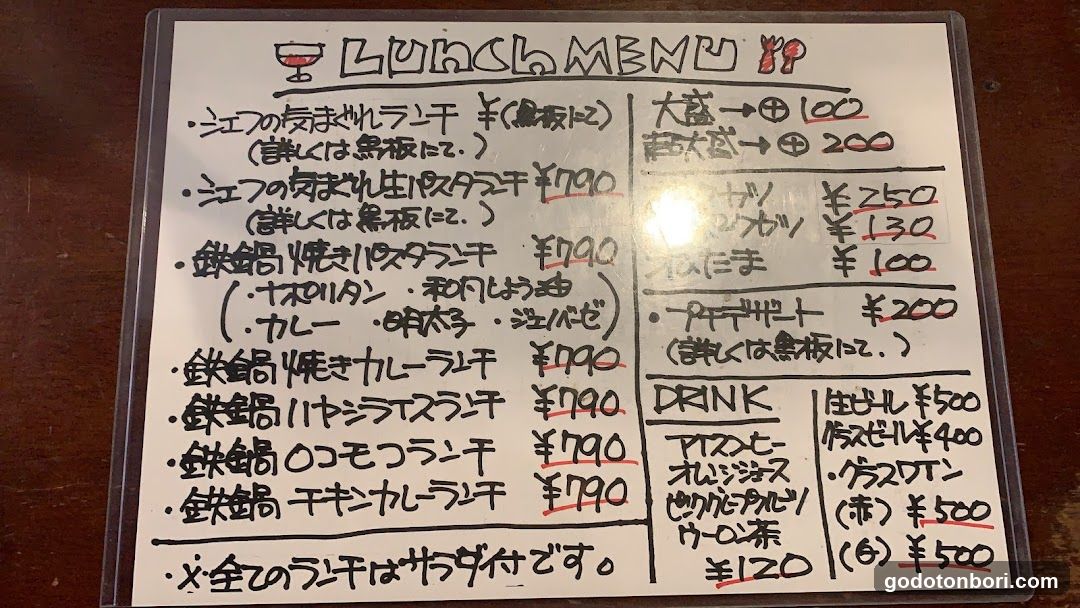 LUNCH MENU
・シェフの気まぐれランチ ¥(黒板にて)
(詳しくは黒板にて.)
・シェフの気まぐれ生パスタランチ ¥790
(詳しくは黒板にて.)
・鉄鍋焼きパスタランチ ¥790
(・ナポリタン ・和風しょう油
・カレー ・明太子 ・ジェノバーゼ)
・鉄鍋焼きカレーランチ ¥790
・鉄鍋ハヤシライスランチ ¥790
・鉄鍋ロコモコランチ ¥790
・鉄鍋チキンカレーランチ ¥790
・※全てのランチはサラダ付です。
大盛→⊕100
超大盛→⊕200
¥250
¥130
¥100
・プチデザート ¥200
(詳しくは黒板にて.)
DRINK
アイスコーヒー
オレンジジュース
ピンクグレープフルーツ
ウーロン茶
¥120
生ビール ¥500
グラスビール ¥400
・グラスワイン
(赤) ¥500
(白) ¥500
godotonbori.com